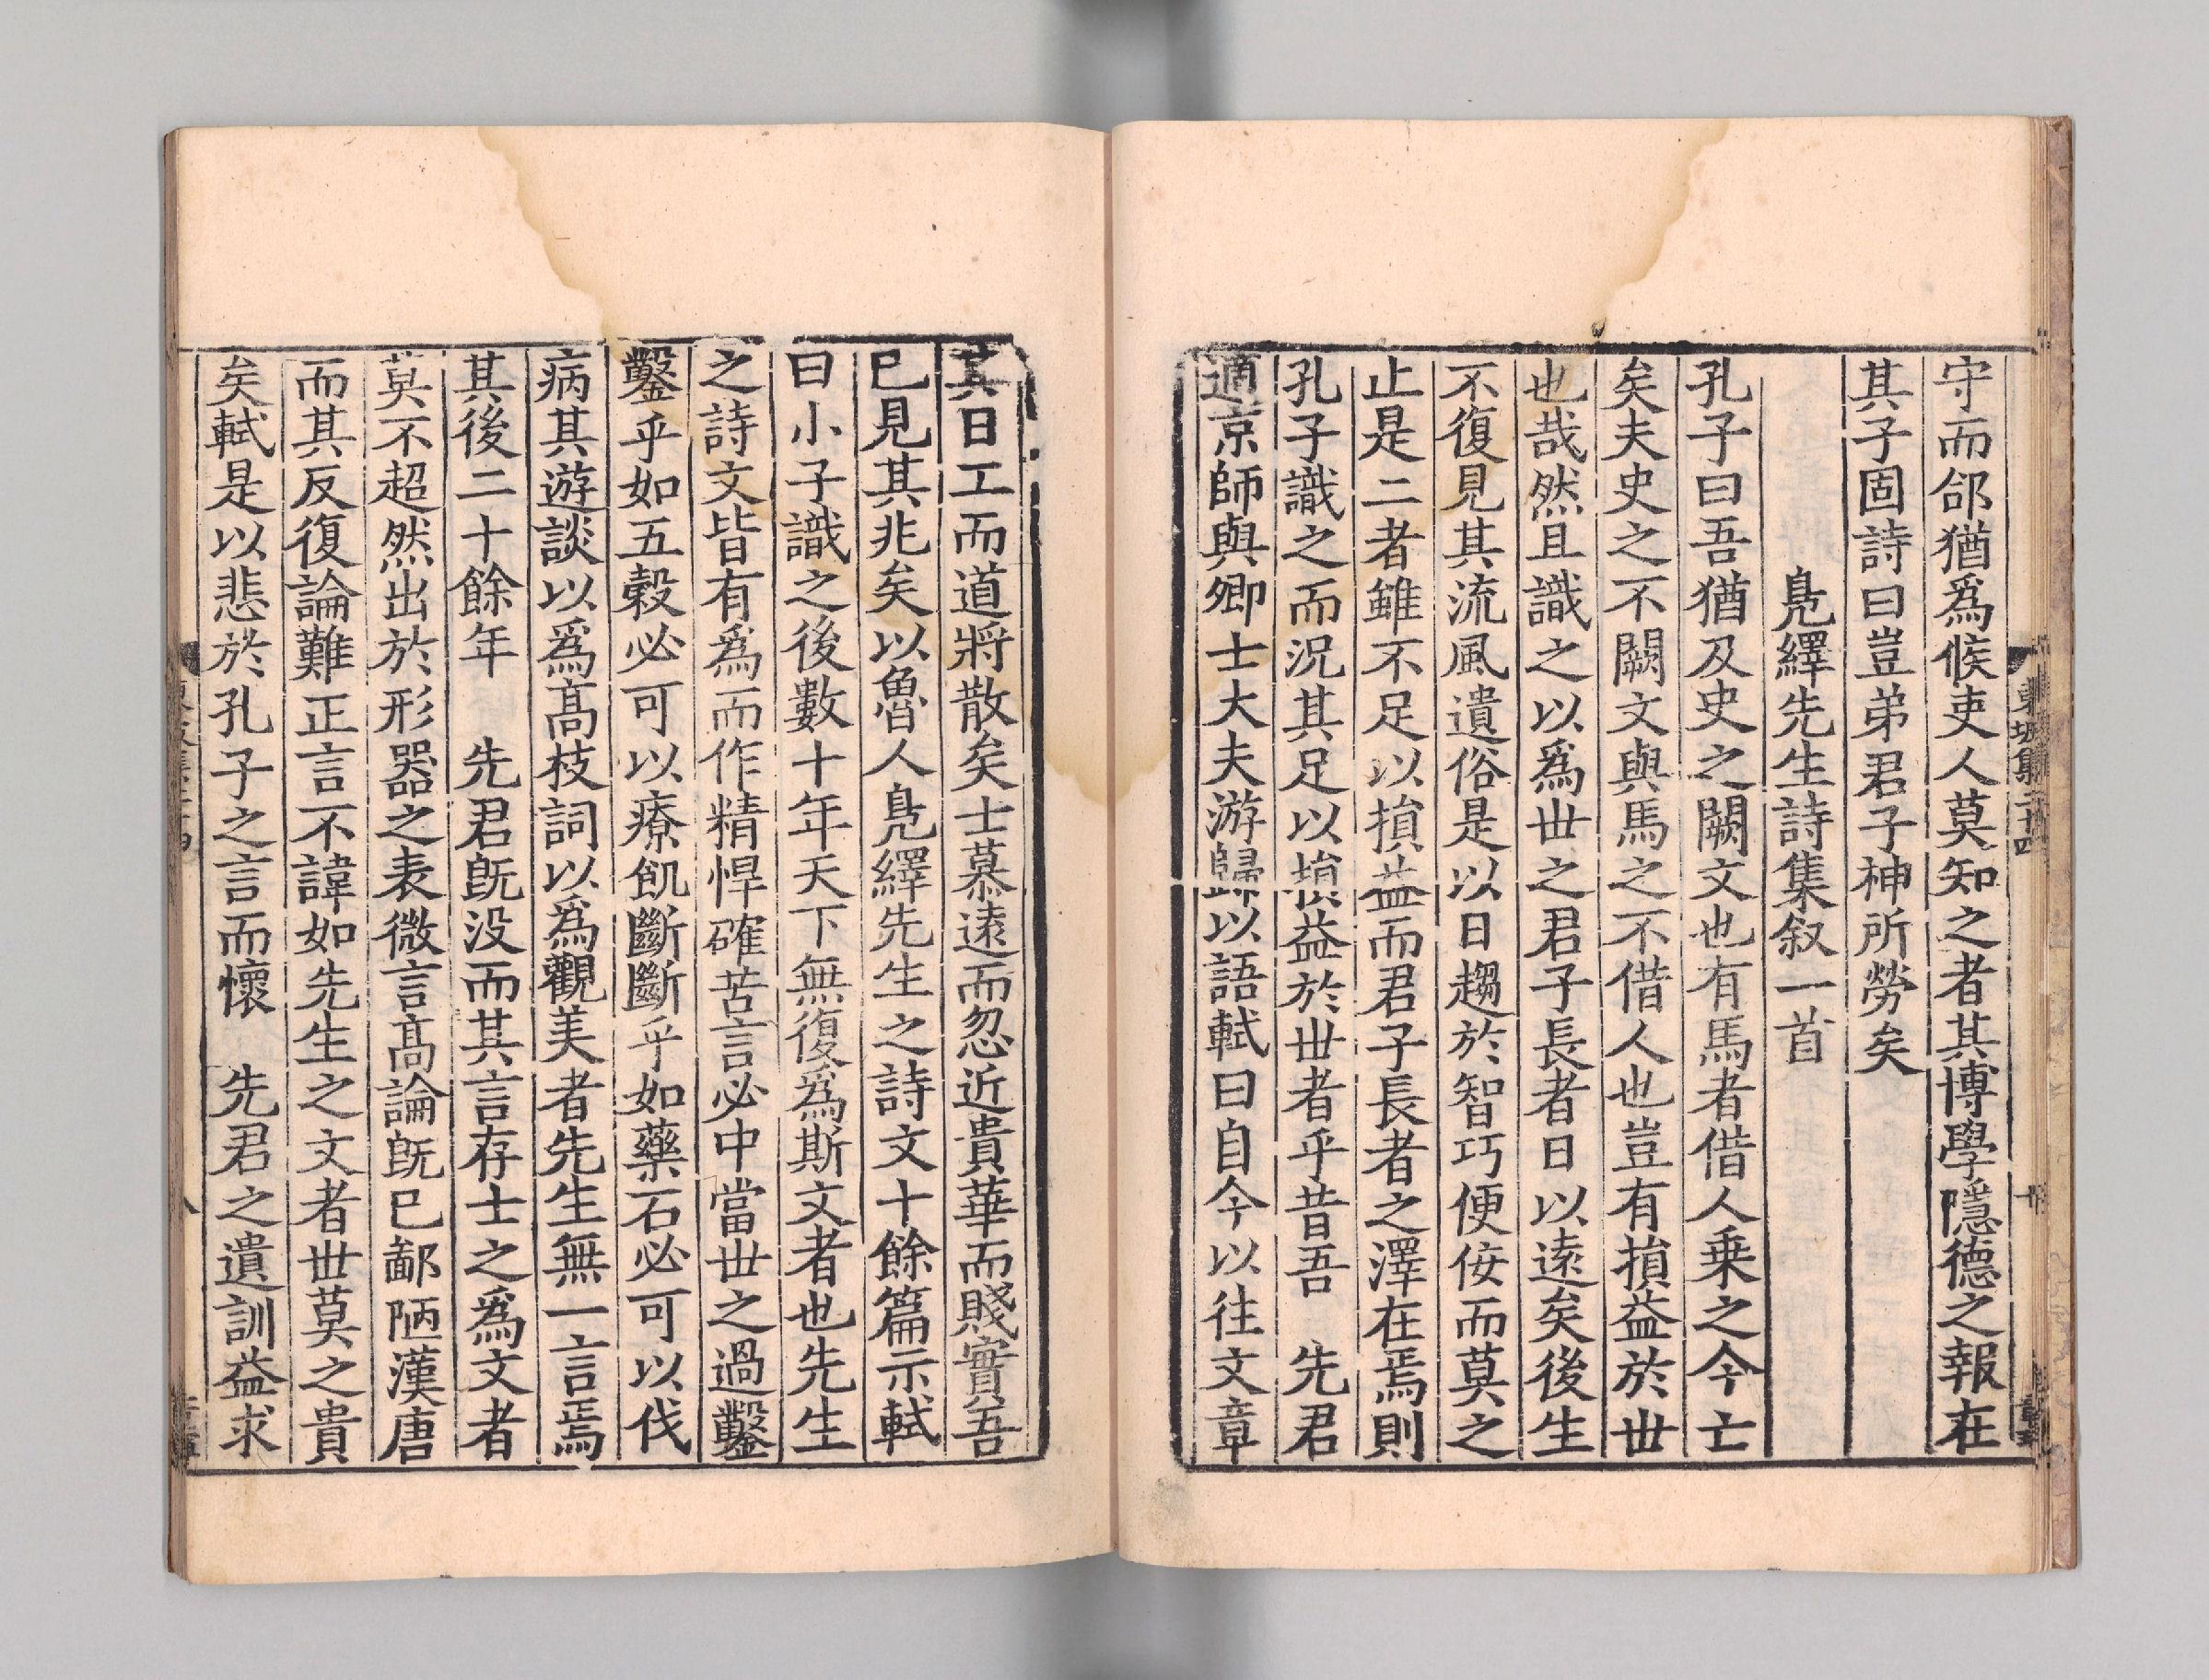 守而郃猶爲候吏人莫知之者其博學隱德之報在
其子固詩曰豈弟君子神所勞矣
鳧繹先生詩集叙一首
孔子曰吾猶及史之闕文也有馬者借人乗之今亡
矣夫史之不闕文與馬之不借人也豈有損益於丗
也哉然且識之以爲丗之君子長者日以逺矣後生
不復見其流風遺俗是以日趨於智巧便佞而莫之
止是二者雖不足以損益而君子長者之澤在焉則
孔子識之而況其足以損益於丗者乎昔吾　先君
適京師與卿士大夫游歸以語軾曰自今以往文章
其日工而道將散矣士慕逺而忽近貴華而賤實吾
已見其兆矣以魯人鳧繹先生之詩文十餘篇示軾
曰小子識之後數十年天下無復爲斯文者也先生
之詩文皆有爲而作精悍確苦言必中當丗之過鑿
鑿乎如五穀必可以療飢斷斷乎如藥石必可以伐
病其遊談以爲髙枝詞以爲觀美者先生無一言焉
其後二十餘年　先君旣没而其言存士之爲文者
莫不超然出於形器之表微言髙論旣已鄙陋漢唐
而其反復論難正言不諱如先生之文者丗莫之貴
矣軾是以悲於孔子之言而懷　先君之遺訓益求
東坡集二十四
八